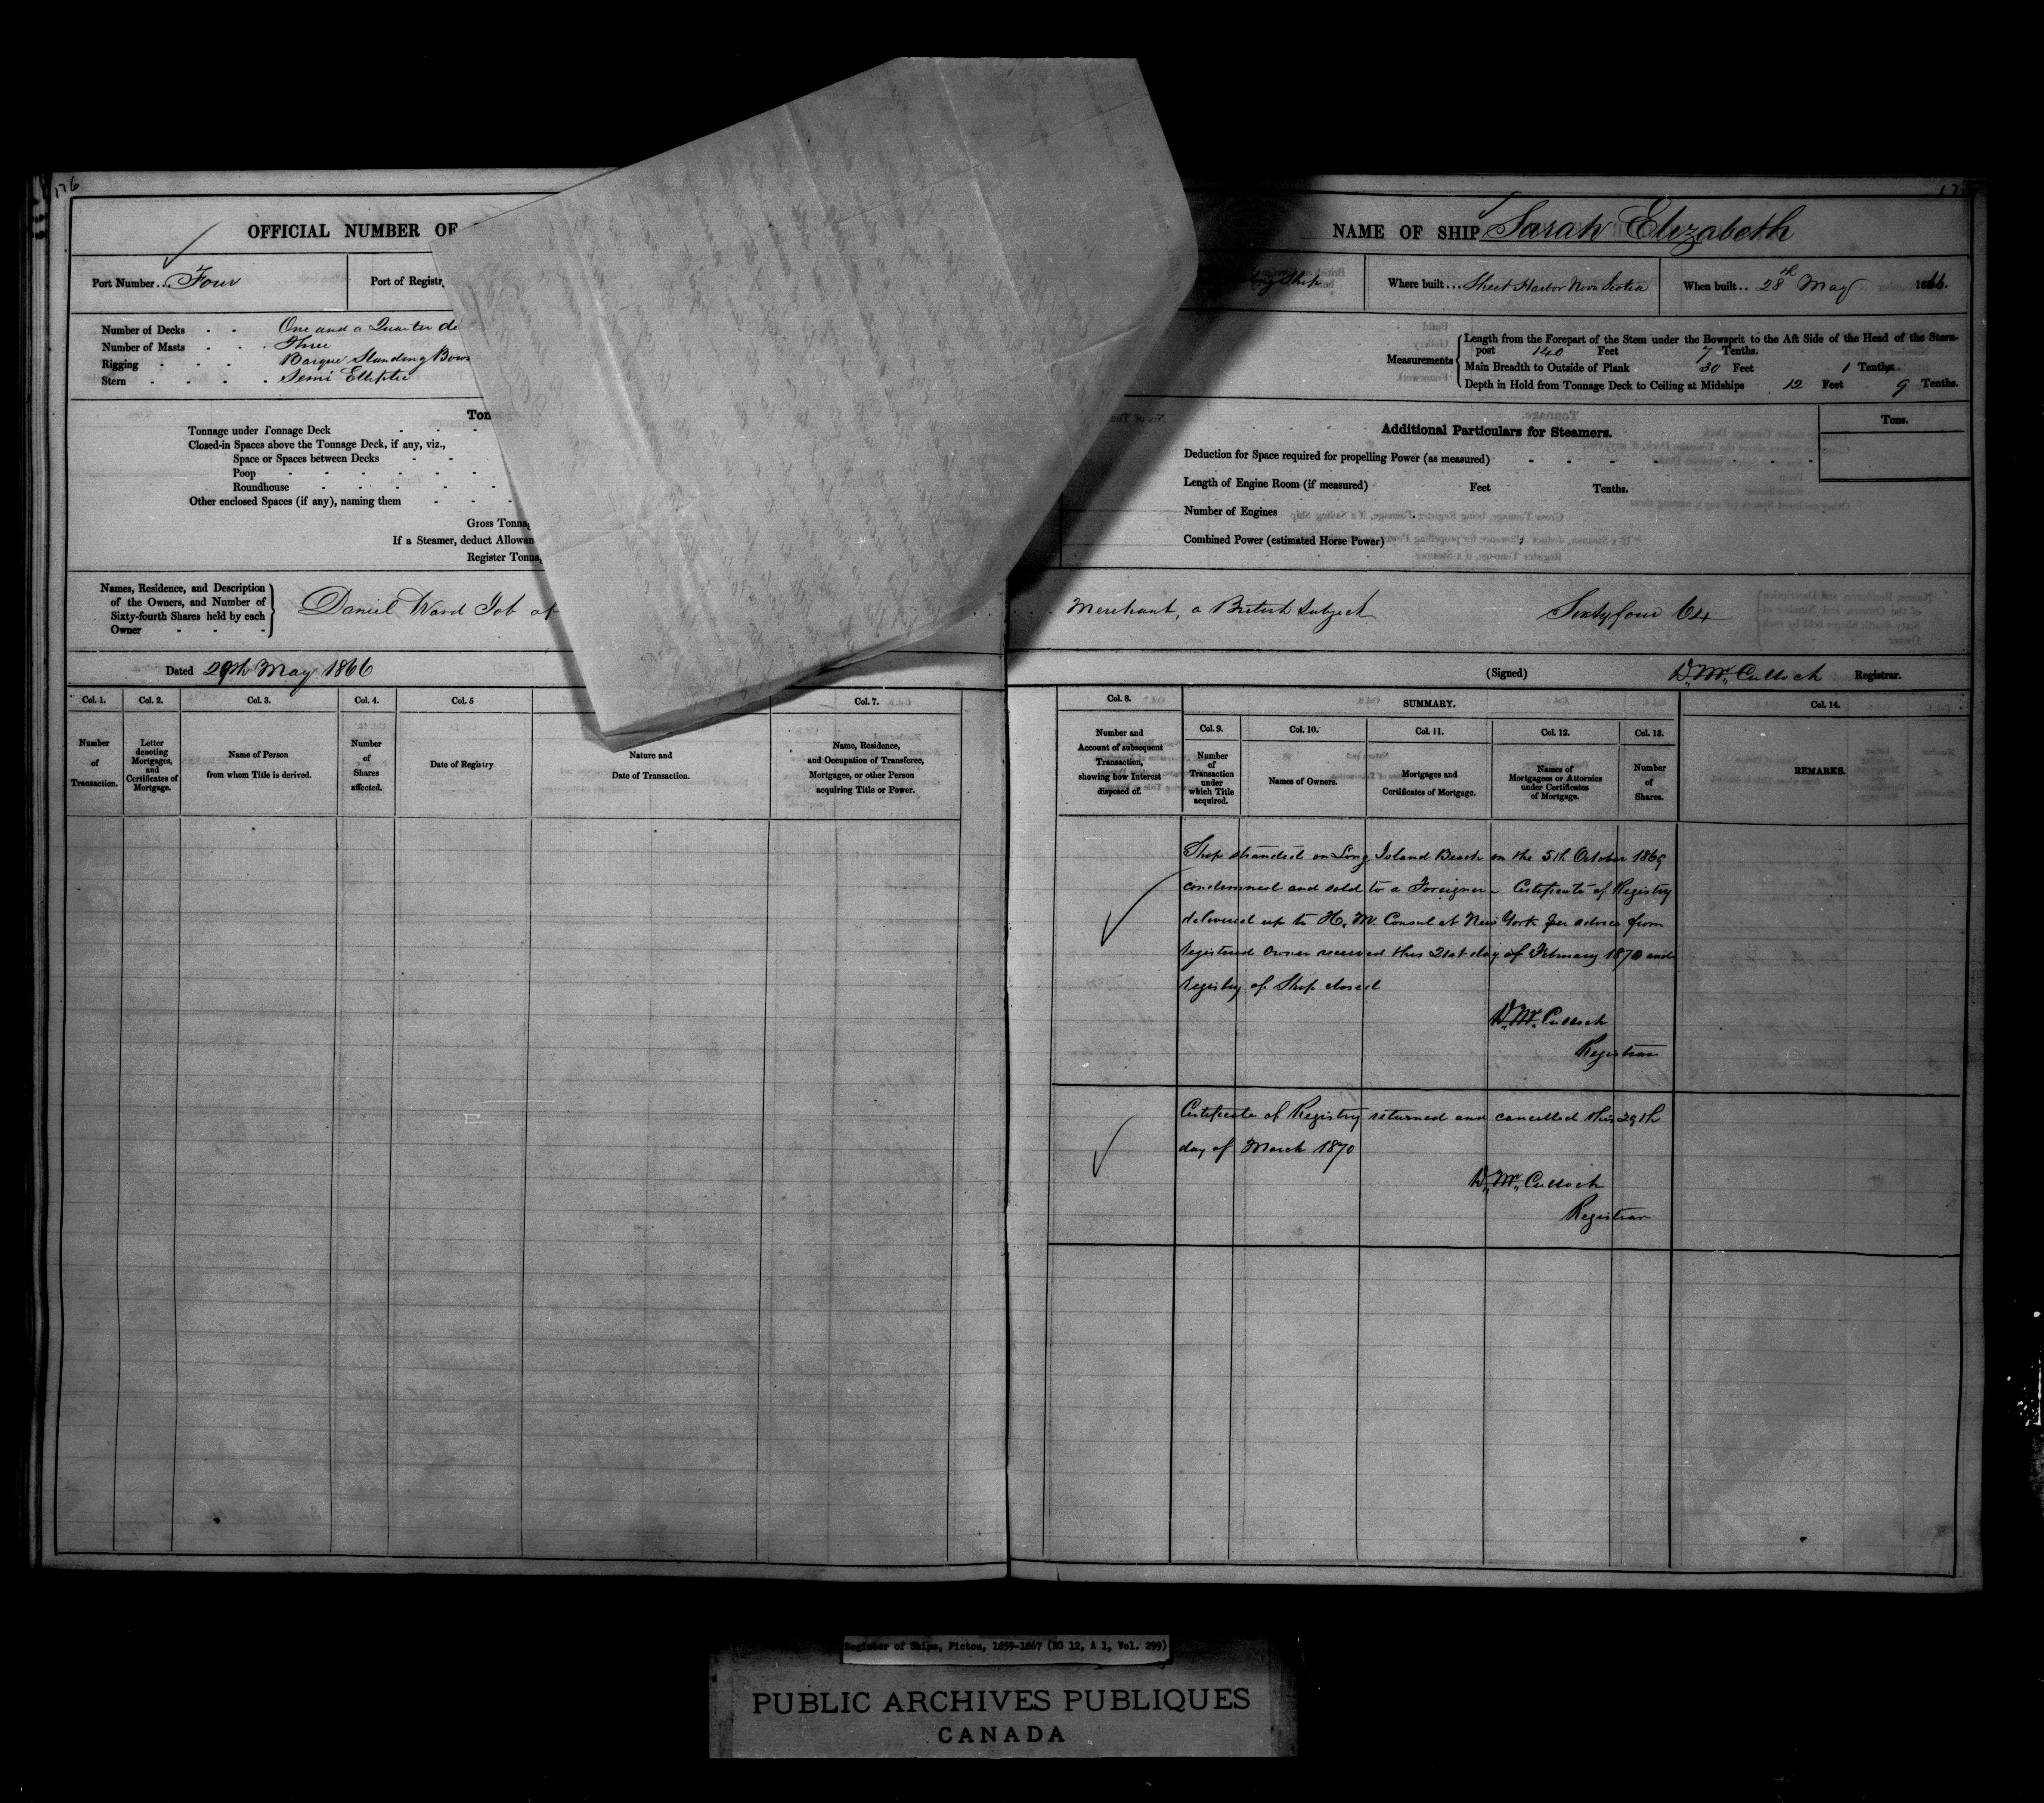 176
OFFICIAL NUMBER OF
NAME OF SHIP Sarah Elizabeth
Port Number... Four
Port of Registr
Ship
Where built... Sheet Harbor Nova Scotia
When built.. 28th May 1866.
Number of Decks One and a Quarter de
Number of Masts Three
Rigging Barque Standing Bows
Stern Semi Elliptic
Measurements
Length from the Forepart of the Stem under the Bowsprit to the Aft Side of the Head of the Stern-
post 140 Feet 7 Tenths.
Main Breadth to Outside of Plank 30 Feet 1 Tenths.
Depth in Hold from Tonnage Deck to Ceiling at Midships 12 Feet 9 Tenths.
Ton
Tonnage under Tonnage Deck
Closed-in Spaces above the Tonnage Deck, if any, viz.,
Space or Spaces between Decks
Poop
Roundhouse
Other enclosed Spaces (if any), naming them
Gross Tonna
If a Steamer, deduct Allowan
Register Tonna
Additional Particulars for Steamers.
Tons.
Deduction for Space required for propelling Power (as measured)
Length of Engine Room (if measured) Feet Tenths.
Number of Engines
Combined Power (estimated Horse Power)
Names, Residence, and Description
of the Owners, and Number of
Sixty-fourth Shares held by each
Owner
Daniel Ward Job of
Merchant, a British Subject Sixty four 64
Dated 29th May 1866
(Signed) D. McCulloch Registrar.
Col. 1. Col. 2. Col. 3. Col. 4. Col. 5 Col. 7.
Number
of
Transaction.
Letter
denoting
Mortgages,
and
Certificates of
Mortgage.
Name of Person
from whom Title is derived.
Number
of
Shares
affected.
Date of Registry
Nature and
Date of Transaction.
Name, Residence,
and Occupation of Transferee,
Mortgagee, or other Person
acquiring Title or Power.
Col. 8.
Number and
Account of subsequent
Transaction,
showing how Interest
disposed of.
SUMMARY.
Col. 9. Col. 10. Col. 11. Col. 12. Col. 13.
Number
of
Transaction
under
which Title
acquired.
Names of Owners.
Mortgages and
Certificates of Mortgage.
Names of
Mortgagees or Attornies
under Certificates
of Mortgage.
Number
of
Shares.
Col. 14.
REMARKS.
Ship stranded on Long Island Beach on the 5th October 1869
condemned and sold to a Foreigner - Certificate of Registry
delivered up to H. M. Consul at New York per advice from
registered Owner received this 21st day of February 1870 and
registry of Ship closed
D. McCulloch
Registrar
Certificate of Registry returned and cancelled this 29th
day of March 1870
D. McCulloch
Registrar
Register of Ships, Pictou, 1859-1867 (RG 12, A 1, Vol. 299)
PUBLIC ARCHIVES PUBLIQUES
CANADA